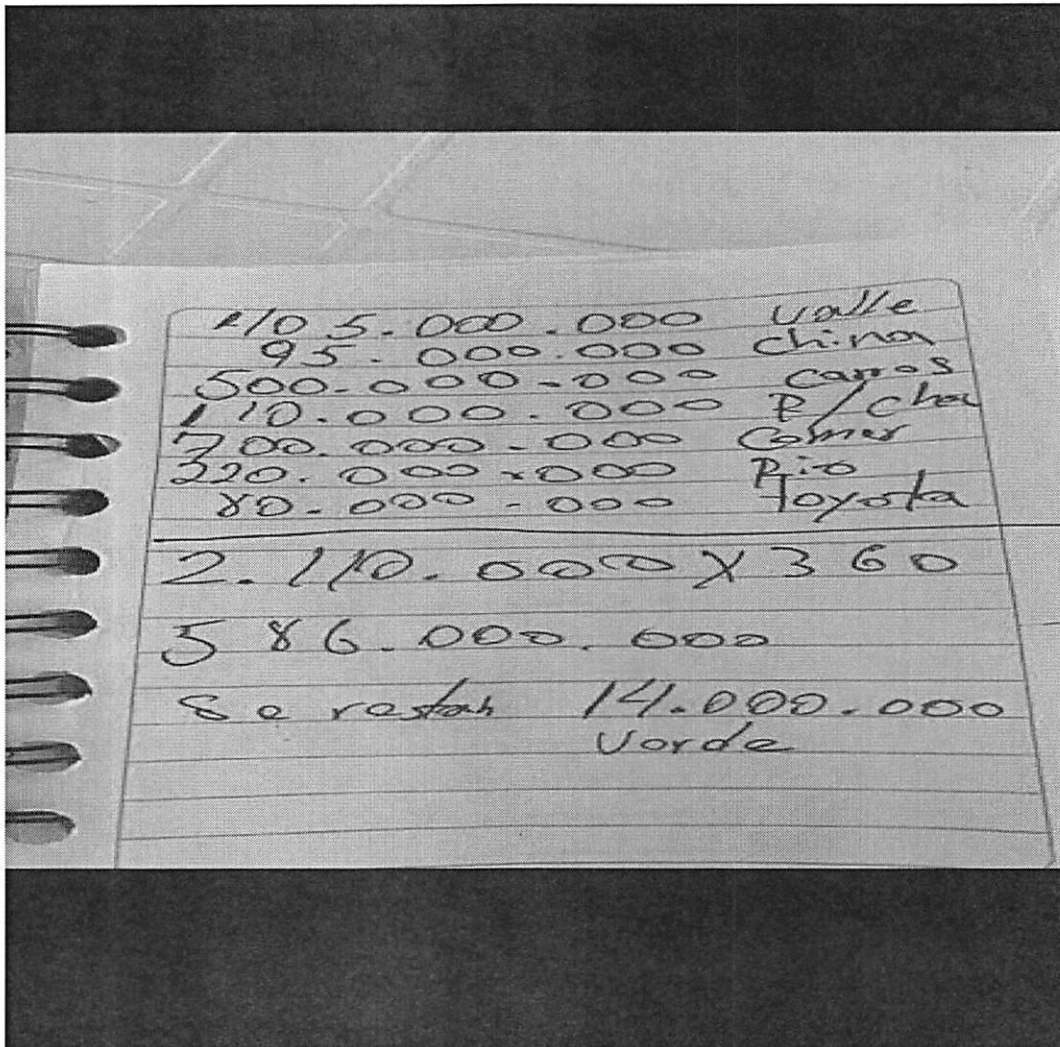 105.000.000 valle
95.000.000 china
500.000.000 carros
110.000.000 P/cha
700.000.000 Comer
320.000.000 Rio
80.000.000 Toyota
2.110.000 X 360
586.000.000
Se restan 14.000.000
Verde